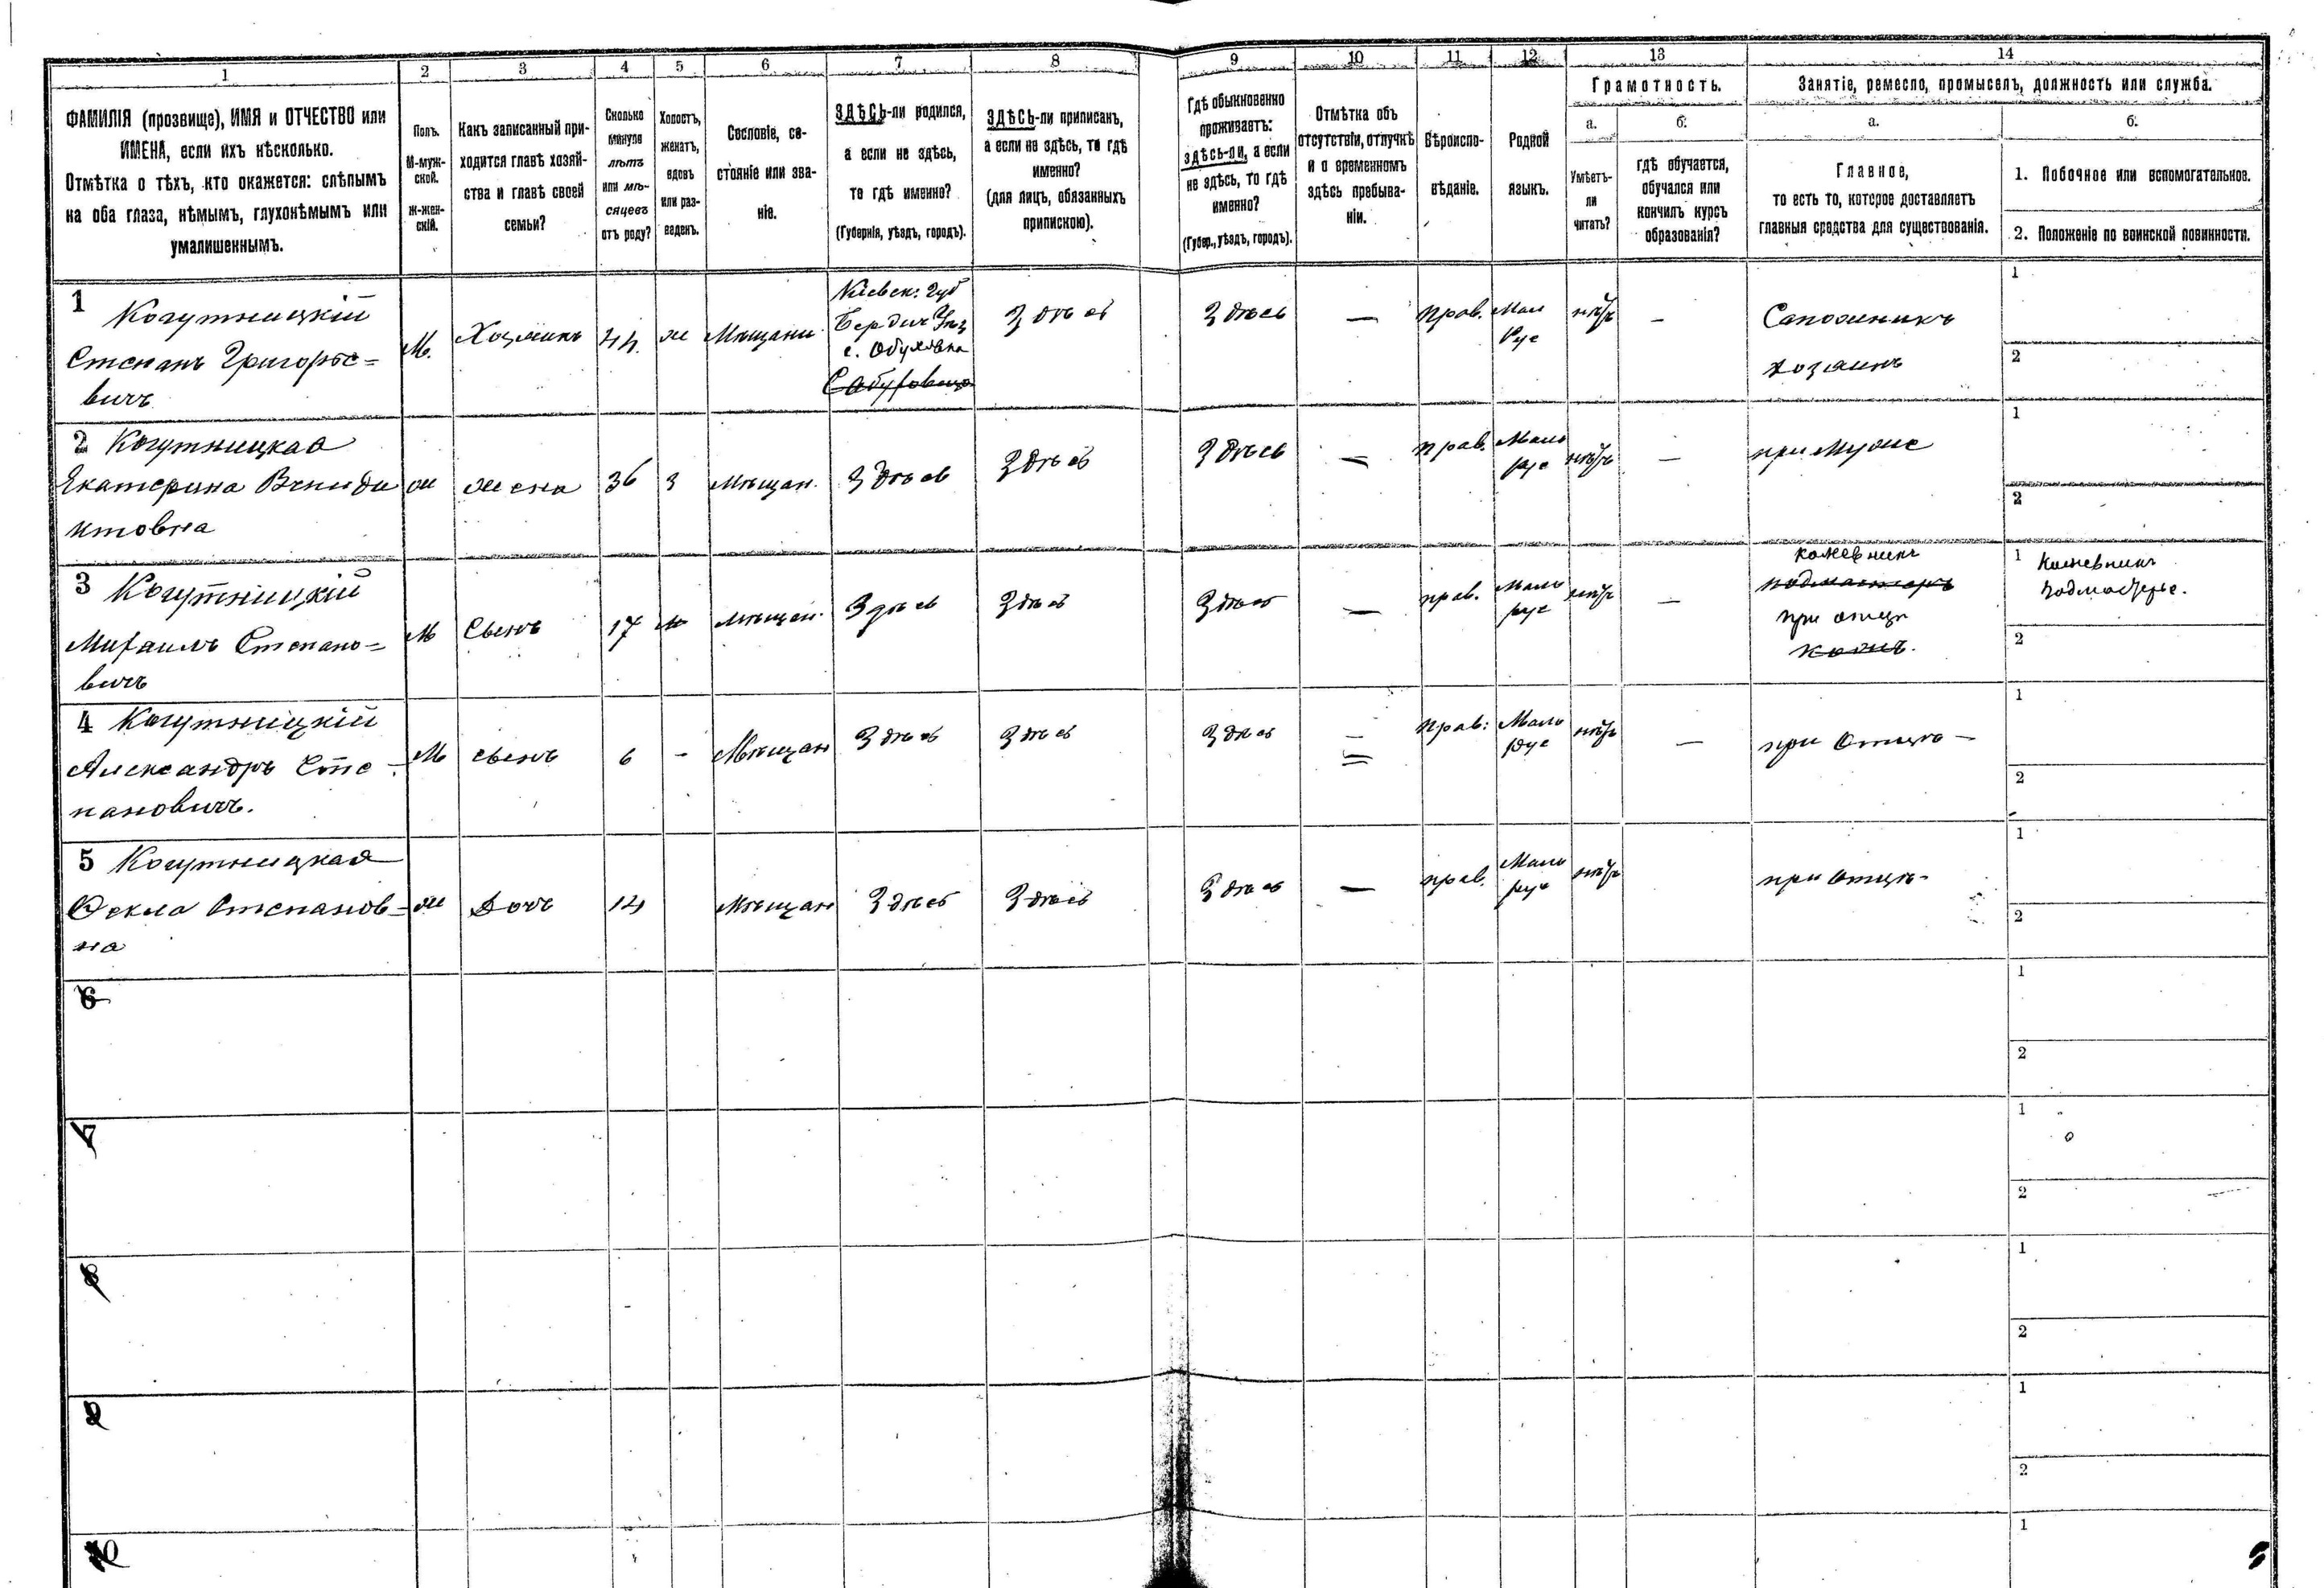 1 2 3 4 5 6 7 8 9 10 11 12 13 14
ФАМИЛІЯ (прозвище), ИМЯ и ОТЧЕСТВО или
ИМЕНА, если ихъ нѣсколько.
Отмѣтка о тѣхъ, кто окажется: слѣпымъ
на оба глаза, нѣмымъ, глухонѣмымъ или
умалишеннымъ.
Полъ.
М-муж-
ской.
Ж-жен-
скій.
Какъ записанный при-
ходится главѣ хозяй-
ства и главѣ своей
семьи?
Сколько
минуло
лѣтъ
или мѣ-
сяцевъ
отъ роду?
Холостъ,
женатъ,
вдовъ
или раз-
веденъ.
Сословіе, со-
стояніе или зва-
ніе.
ЗДѢСЬ-ли родился,
а если не здѣсь,
то гдѣ именно?
(Губернія, уѣздъ, городъ).
ЗДѢСЬ-ли приписанъ,
а если не здѣсь, то гдѣ
именно?
(для лицъ, обязанныхъ
припискою).
Гдѣ обыкновенно
проживаетъ:
здѣсь-ли, а если
не здѣсь, то гдѣ
именно?
(Губер., уѣздъ, городъ).
Отмѣтка объ
отсутствіи, отлучкѣ
и о временномъ
здѣсь пребыва-
ніи.
Вѣроиспо-
вѣданіе.
Родной
языкъ.
Грамотность.
а.
Умѣетъ-
ли
читать?
б.
гдѣ обучается,
обучался или
кончилъ курсъ
образованія?
Занятіе, ремесло, промыселъ, должность или служба.
а.
Главное,
то есть то, которое доставляетъ
главныя средства для существованія.
б.
1. Побочное или вспомогательное.
2. Положеніе по воинской повинности.
1 Когутницкій
Степанъ Григорье=
вичъ
М.
Хозяинъ
44.
ж
Мѣщани
Кіевск: губ
Бердич Уѣз
с. Обуховка
Здѣсь
Здѣсь
—
Прав.
Мал
Рус
нѣтъ
—
Сапожникъ
хозяинъ
1
2
2 Когутницкая
Екатерина Вениди
ктовна
ж
жена
36
З
Мѣщан.
Здѣсь
Здѣсь
Здѣсь
—
прав.
Мало
рус
нѣтъ
—
при муже
1
2
3 Когутницкій
Михаилъ Степано=
вичъ
М
Сынъ
17
мѣщан.
Здѣсь
Здѣсь
Здѣсь
—
прав.
Мало
рус
нѣтъ
—
кожевникъ
подмастеръ
при отцѣ
1 Кожевникъ
подмастерье.
2
4 Когутницкій
Александръ Сте-
пановичъ.
М
сынъ
6
-
Мѣщан
Здѣсь
Здѣсь
Здѣсь
—
Прав:
Мало
рус
нѣтъ
—
при Отцѣ —
1
2
5 Когутницкая
Фекла Степанов=
на
ж
Дочь
14
Мѣщан
Здѣсь
Здѣсь
Здѣсь
—
прав.
Мало
рус
нѣтъ
при Отцѣ-
1
2
6
1
2
7
1
2
8
1
2
9
1
2
10
1